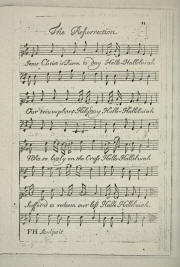 The Resurrection
Jesus Christ is Risen to day Halle-Halleluiah
Our triumphant Holyday Halle-Halleluiah
Who so lately on the Cross Halle-Halleluiah
Sufferd to redeem our loss Halle-Halleluiah
FH Sculpsit